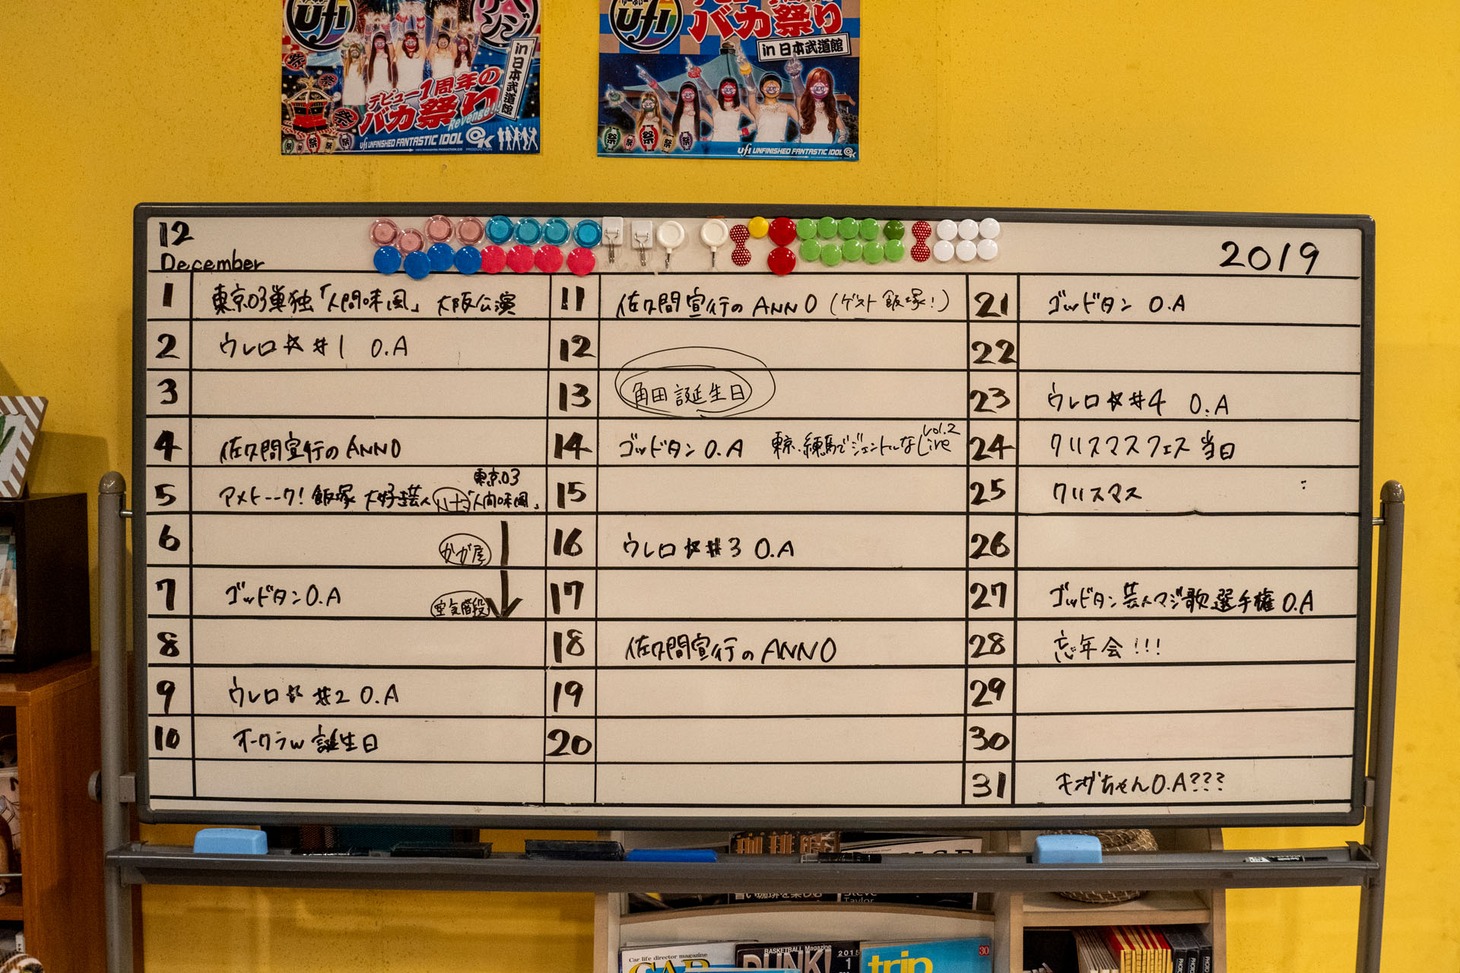 ufi
デビュー1周年の
バカ祭り
Revenge!!
in 日本武道館
祭
ufi UNFINISHED FANTASTIC IDOL
ufi
バカ祭り
in 日本武道館
祭 祭 祭 祭
ufi UNFINISHED FANTASTIC IDOL
12
December
2019
1 東京03単独「人間味風」 大阪公演
2 ウレロ☆#1 O.A
3
4 佐久間宣行のANN0
5 アメトーーク! 飯塚 大好き芸人 東京03 「人間味風」
6 かが屋
7 ゴッドタン O.A 空気階段
8
9 ウレロ☆#2 O.A
10 オークラw 誕生日
11 佐久間宣行のANN0 (ゲスト飯塚!)
12
13 角田 誕生日
14 ゴッドタン O.A 東京.練馬でジェントルなLive vol.2
15
16 ウレロ☆#3 O.A
17
18 佐久間宣行のANN0
19
20
21 ゴッドタン O.A
22
23 ウレロ☆#4 O.A
24 クリスマスフェス 当日
25 クリスマス
26
27 ゴッドタン 芸人マジ歌選手権 O.A
28 忘年会!!!
29
30
31 キングちゃんO.A???
Steve
Taylor
Car life director magazine
CAR
BASKETBALL Magazine
DUNK
trip
30